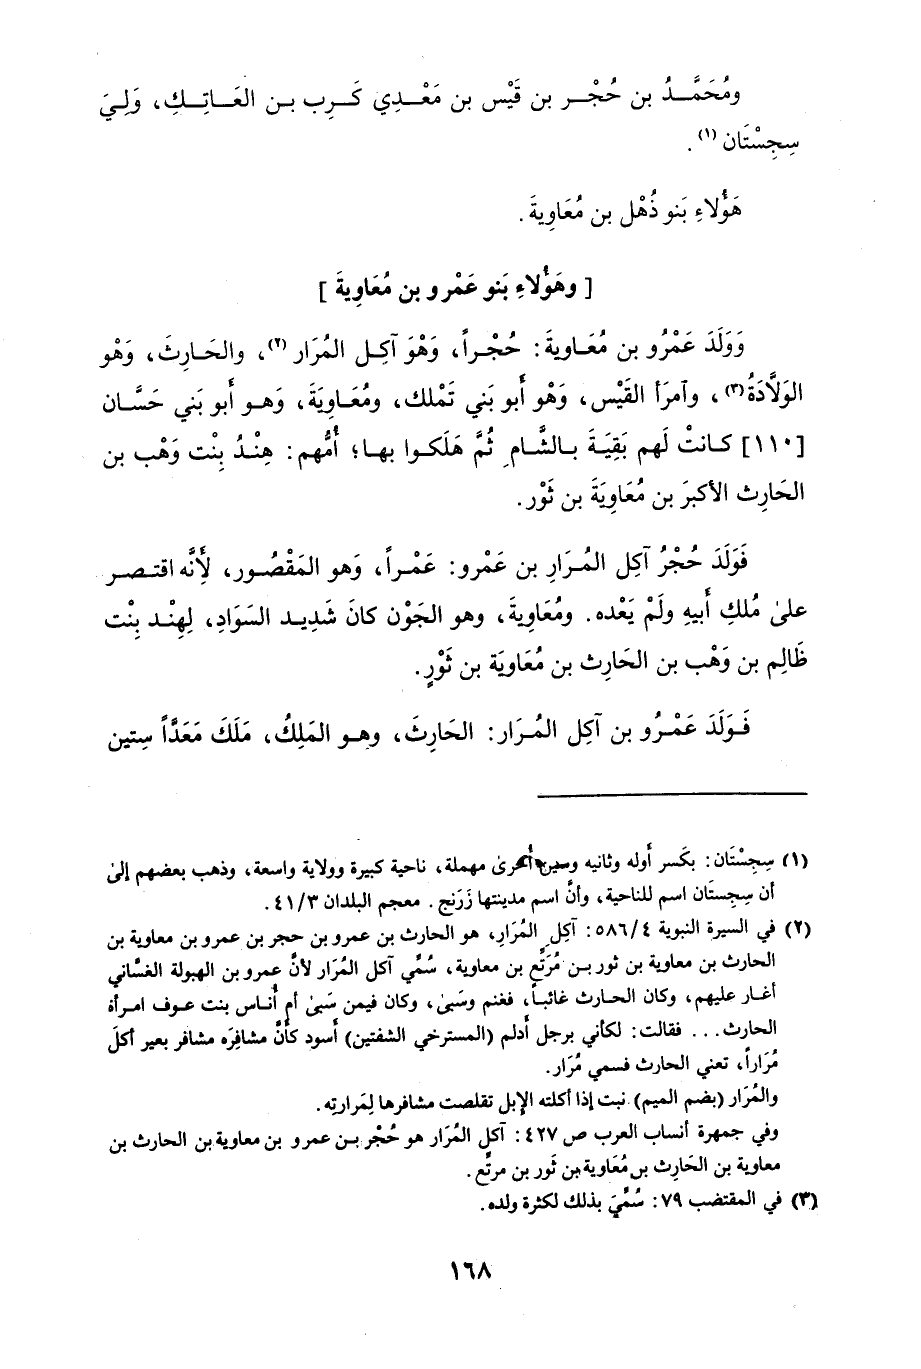 ومُحَمَّدُ بن حُجْر بن قَيْس بن مَعْدِي كَرِب بن العَاتِكِ، وَلِيَ
سِجِسْتَان (١) .
هَؤُلاءِ بَنو ذُهْل بن مُعَاوِيةَ .
[ وهَؤُلاءِ بَنو عَمْرو بن مُعَاوِيةَ ]
وَوَلَدَ عَمْرُو بن مُعَاويةَ: حُجْراً، وَهْوَ آكِل المُرَار (٢)، والحَارِثَ، وَهْو
الوَلَّادَةُ (٣)، وآمرَأ القَيْس، وَهْو أَبو بَني تَمْلك، ومُعَاوِيَةَ، وَهو أَبو بَني حَسَّان
[١١٠] كانتْ لَهم بَقِيَةَ بالشَّام ِ ثُمَّ هَلَكوا بها؛ أُمُّهم: هِنْدُ بِنْت وَهْب بن
الحَارِث الأكبرَ بن مُعَاوِيَةَ بن ثَوْر.
فَوَلَدَ حُجْرُ آكِل المُرَارِ بن عَمْرو: عَمْراً، وَهو المَقْصُور، لِأَنَّه اقتصر
علىٰ مُلكِ أَبيهِ ولَمْ يَعْده. ومُعَاوِيةَ، وهو الجَوْن كانَ شَدِيد السَوَادِ، لِهِنْد بِنْت
ظَالِم بن وَهْب بن الحَارِث بن مُعَاويَة بن ثَوْرٍ.
فَوَلَدَ عَمْرُو بن آكِل المُرَار: الحَارِثَ، وهو المَلِكُ، مَلَكَ مَعَدَّاً سِتين
(١) سِجِسْتَان: بكَسر أَوله وثانيه وسين أُخرىٰ مهملة، ناحية كبيرة وولاية واسعة، وذهب بعضهم إلىٰ
أن سِجِستَان اسم للناحية، وأنَّ اسم مدينتها زَرَنج. معجم البلدان ٤١/٣.
(٢) في السيرة النبوية ٥٨٦/٤: آكِل المُرَارِ، هو الحارث بن عمرو بن حجر بن عمرو بن معاوية بن
الحارث بن معاوية بن ثور بن مُرَتِّع بن معاوية، سُمِّي آكل المُرَار لأنَّ عمرو بن الهبولة الغسَّاني
أغار عليهم، وكان الحارث غائباً، فغنم وسَبىٰ، وكان فيمن سَبىٰ أم أُناس بنت عوف امرأة
الحارث... فقالت: لكأني برجل أدلم (المسترخي الشفتين) أسود كأنَّ مشافِرَه مشافر بعير أكلَ
مُرَاراً، تعني الحارث فسمي مُرَار.
والمُرَار (بضم الميم) نبت إذا أكلته الإبل تقلصت مشافرها لِمَرارتِه.
وفي جمهرة أنساب العرب ص ٤٢٧: آكل المُرَار هو حُجْر بن عمرو بن معاوية بن الحارث بن
معاوية بن الحَارِث بن مُعَاوية بن ثَور بن مرتِّع.
(٣) في المقتضب ٧٩: سُمِّيَ بذلك لكثرة ولده.
١٦٨